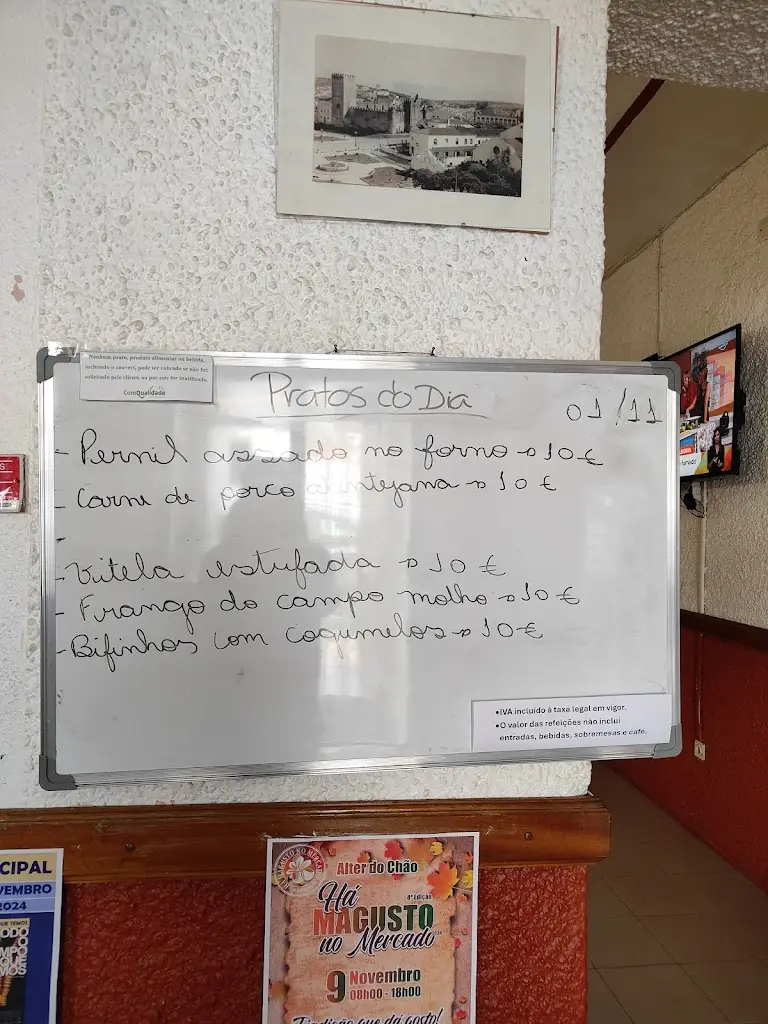 Nenhum prato, produto alimentar ou bebida,
incluindo o couvert, pode ser cobrado se não for
solicitado pelo cliente ou por este for inutilizado.
ComQualidade
Pratos do Dia
01/11
- Pernil assado no forno → 10 €
- Carne de porco alentejana → 10 €
-
- Vitela estufada → 10 €
- Frango do campo molho → 10 €
- Bifinhos com cogumelos → 10 €
•IVA incluído à taxa legal em vigor.
•O valor das refeições não inclui
entradas, bebidas, sobremesas e café.
CIPAL
VEMBRO
2024
Alter do Chão
8ª Edição
Há
MAGUSTO
no Mercado
9 Novembro
08h00 - 18h00
Tradição que dá gosto!